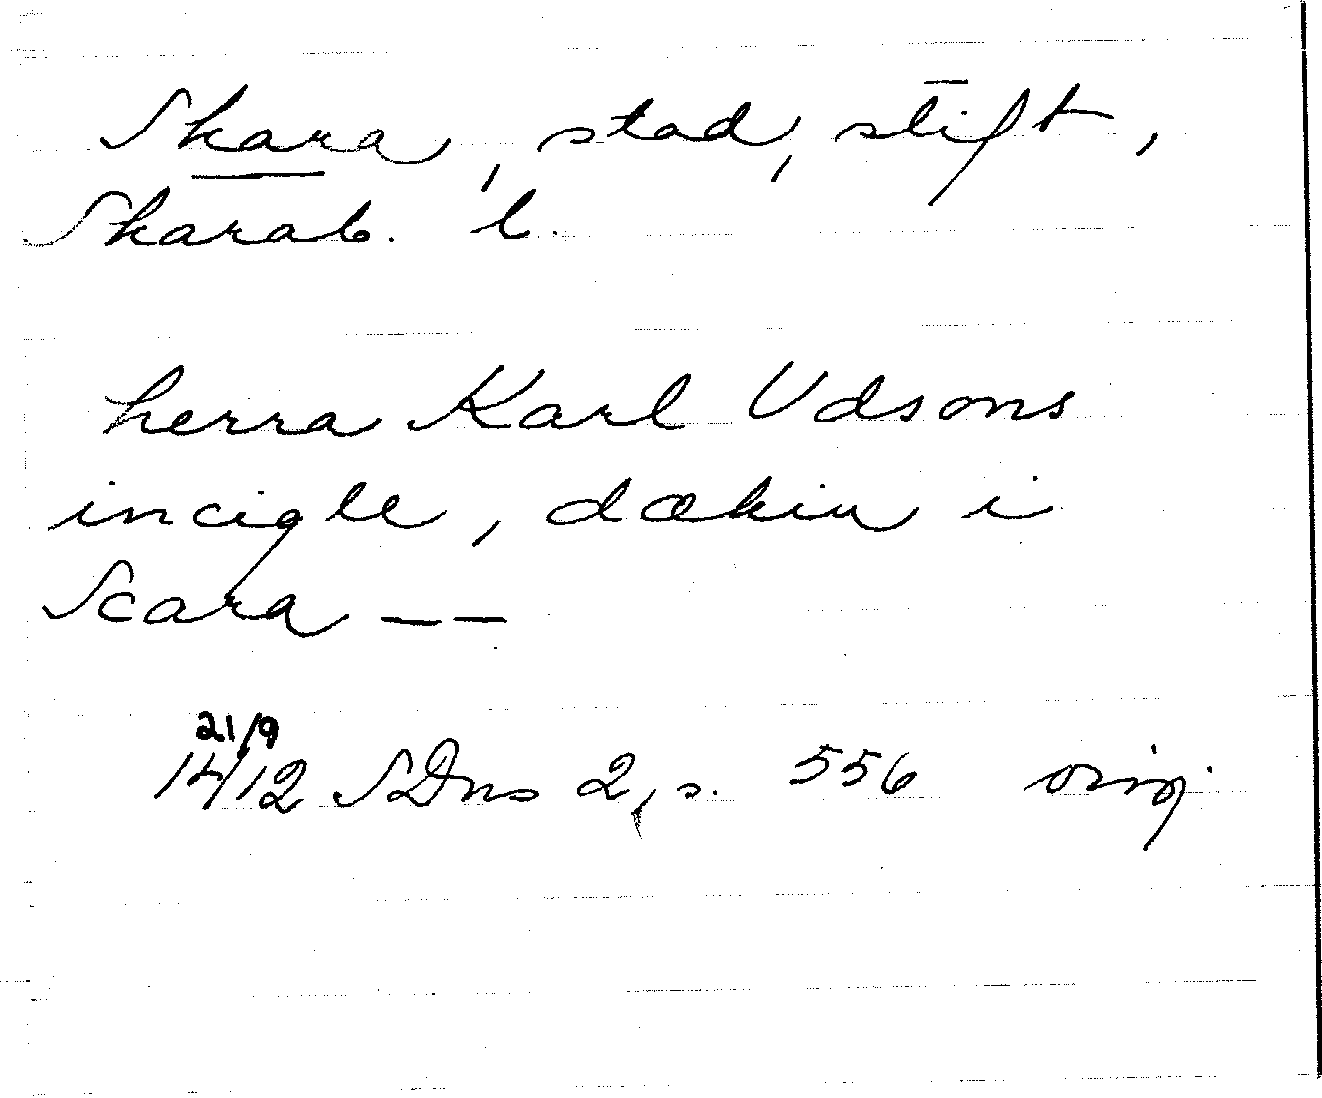 Skara, stad, stift,
Skarab. l.
herra Karl Vdsons
incigle, dækin i
Scara — —
21/9
1412 SDns 2, s. 556 orig.